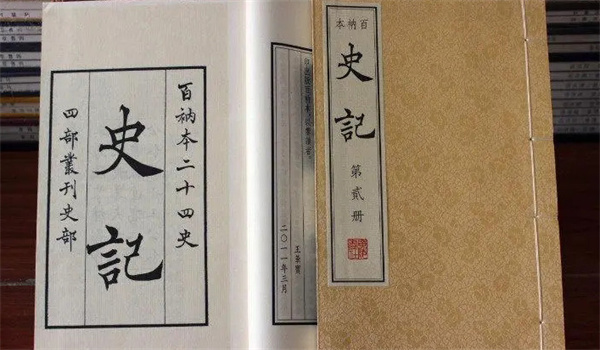 百衲本二十四史
史記
四部叢刊史部
二〇一一年三月
百衲本
史記
第貳册